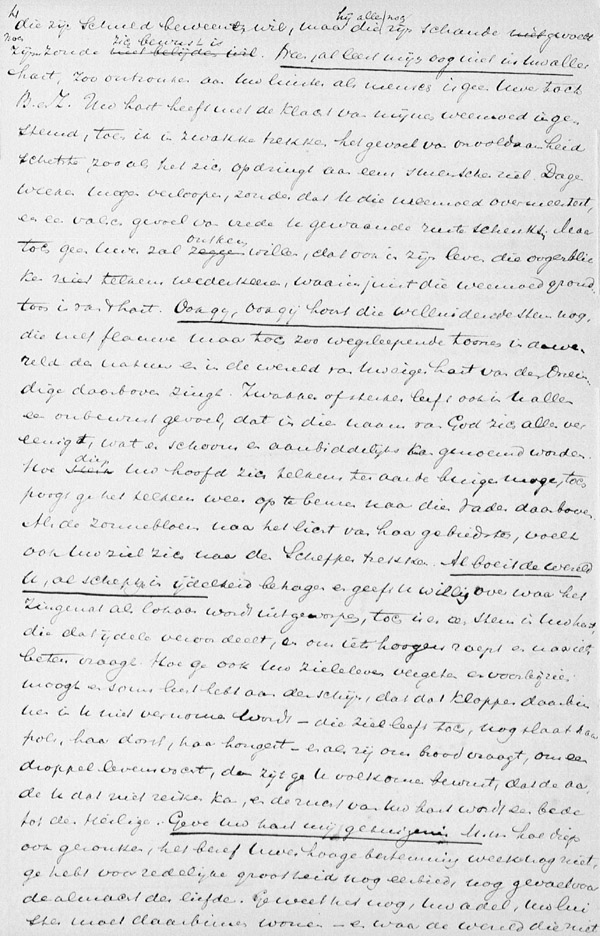 4
die zijn schuld beweenen wil, maar die hij alle zijn schande nog niet gevoelt
zijne zonde niet belijden wil. zich bewust is Neen, al leest mijn oog niet in uw aller
hart, zoo ontrouw aan uw liefste als mensch is geen Uwer toch
B. e. Z. Uw hart heeft met de klacht van mijne weemoed inge
stemd, toen ik in zwakke trekken het gevoel van onvoldaanheid
schetste, zooals het zich opdringt aan eens menschen ziel. Dagen
weken mogen verloopen, zonder dat U die weemoed overmeestert,
en een valsch gevoel van vrede U gewaande ruste schenkt; Maar
toch geen Uwer zal ontkennen zeggen willen, dat ook in zijn leven die oogenblik
ken niet telkens wederkeeren, waarin juist die weemoed grond
toon is van 't hart. Ook gij, ook gij hoort die welluidende stem nog,
die met flauwe maar toch zoo wegsleepende toonen in de we
reld der natuur en in de wereld van Uw eigen hart van den Onein
dige daarboven zingt. Zwakker of sterker leeft ook in U allen
een onbewust gevoel, dat in die naam van God zich alles ver
eenigt, wat er schoons en aanbiddelijks kan genoemd worden.
Hoe diep Uw hoofd zich telkens ter aarde buigen moge, toch
poogt ge het telkens weer op te beuren naar dien Vader daarboven.
Als de zonnebloem naar het licht van haar gebiedster, voelt
ook Uw ziel zich naar den Schepper trekken. Al boeit de wereld
U, al schept ge in ijdelheid behagen en geeft U willig over waar het
zingenot als lokaas wordt uitgeworpen, toch is er een stem in Uw hart,
die dat ijdele veroordeelt, en om iets hoogers roept en naar iets
beters vraagt. Hoe ge ook Uw zieleleven vergeten en voorbijzien
moogt en soms lust hebt aan den schijn, dat dat kloppen daarbin
nen in U niet vernomen wordt – die ziel leeft toch, nog slaat haar
pols, haar dorst, haar hongert – en als zij om brood vraagt, om een
droppel levensvocht, dan zijt ge U volkomen bewust, dat de aar
de U dat niet reiken kan, en de nood van Uw hart wordt een bede
tot den Heilige. Geve Uw hart mij getuigenis M. m. hoe diep
ook gezonken, het besef Uwer hooge bestemming week nog niet,
ge hebt voor zedelijke grootheid nog eerbied, nog gevoel voor
de almacht der liefde. Ge weet het nog, Uw adel, Uw lui
ster moet daarbinnen wonen – en waar de wereld die niet